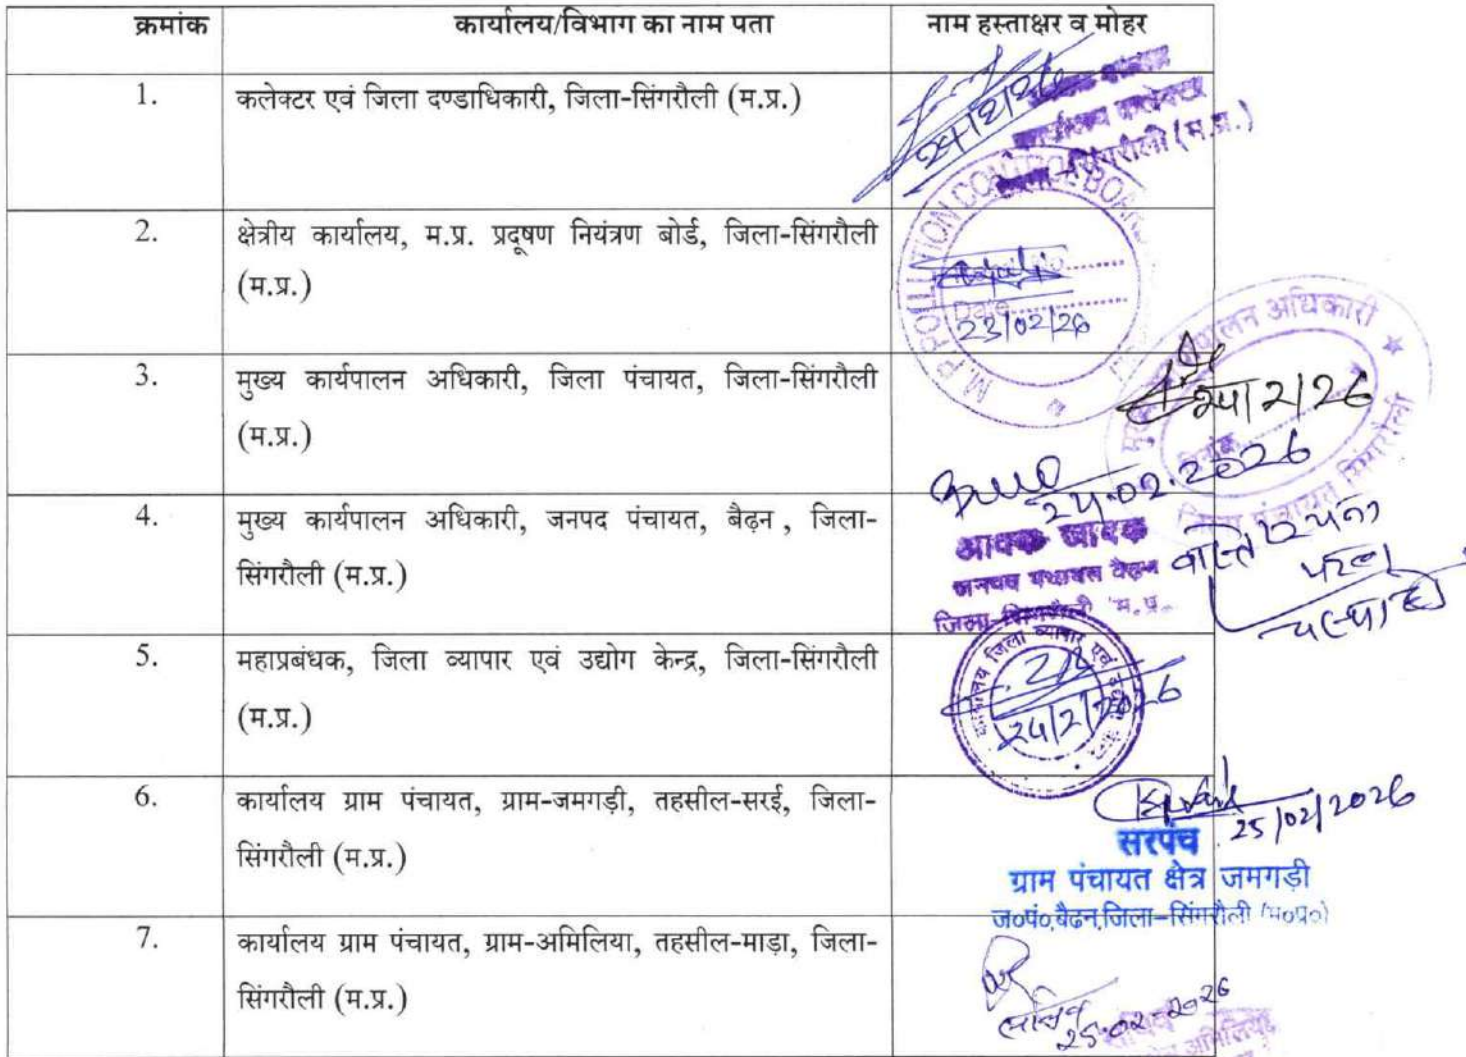 क्रमांक कार्यालय/विभाग का नाम पता नाम हस्ताक्षर व मोहर
1. कलेक्टर एवं जिला दण्डाधिकारी, जिला-सिंगरौली (म.प्र.)
24/2/26
सिंगरौली (म.प्र.)
2. क्षेत्रीय कार्यालय, म.प्र. प्रदूषण नियंत्रण बोर्ड, जिला-सिंगरौली
(म.प्र.)
M.P. POLLUTION CONTROL BOARD
Date
23/02/26
3. मुख्य कार्यपालन अधिकारी, जिला पंचायत, जिला-सिंगरौली
(म.प्र.)
मुख्य कार्यपालन अधिकारी
24/2/26
दिनांक
जिला पंचायत सिंगरौली
24.02.2026
4. मुख्य कार्यपालन अधिकारी, जनपद पंचायत, बैढ़न , जिला-
सिंगरौली (म.प्र.)
आवक
बैढ़न
जिला-सिंगरौली म.प्र.
5. महाप्रबंधक, जिला व्यापार एवं उद्योग केन्द्र, जिला-सिंगरौली
(म.प्र.)
कार्यालय जिला व्यापार एवं उद्योग
24/2/2026
6. कार्यालय ग्राम पंचायत, ग्राम-जमगड़ी, तहसील-सरई, जिला-
सिंगरौली (म.प्र.)
25/02/2026
सरपंच
ग्राम पंचायत क्षेत्र जमगड़ी
ज०पं०,बैढन,जिला-सिंगरौली (म०प्र०)
7. कार्यालय ग्राम पंचायत, ग्राम-अमिलिया, तहसील-माड़ा, जिला-
सिंगरौली (म.प्र.)
सचिव
25-02-2026
सचिव